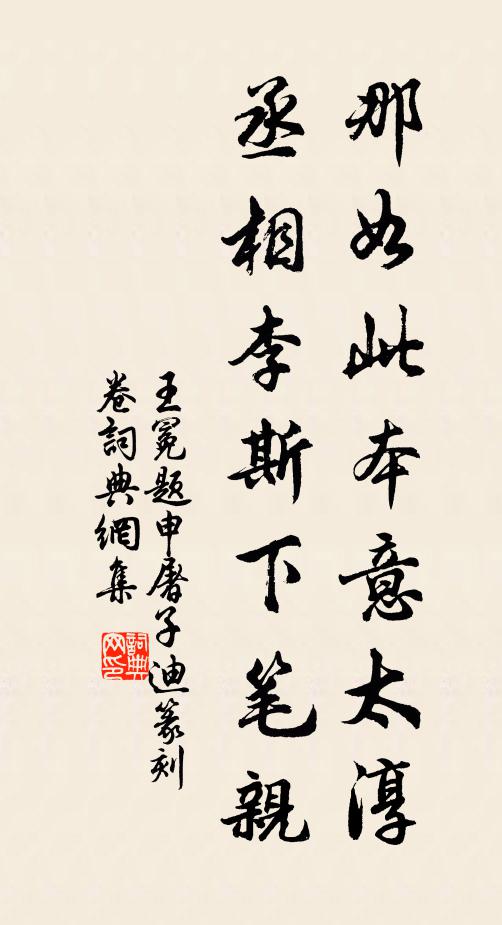 那如此本意太淳
丞相李斯下笔親
王冕题申屠子迪篆刻
卷詞典網集
詞典网印